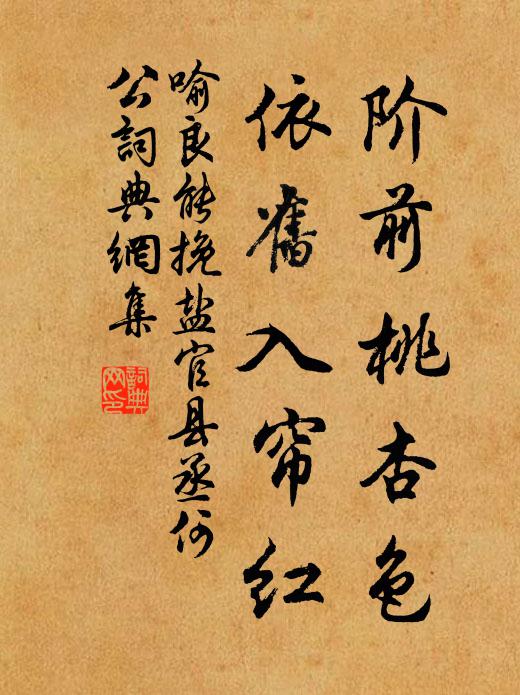 阶前桃杏色
依舊入帘红
喻良能挽盐官县丞何
公詞典網集
詞典
网印